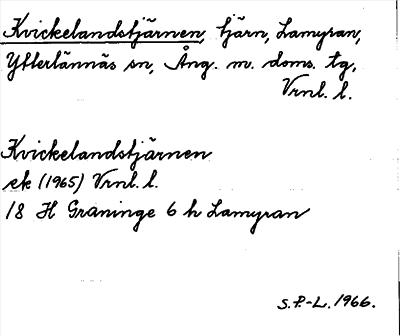 Kvickelandstjärnen, tjärn, Lamyran,
Ytterlännäs sn, Ång. m. doms. tg,
Vrnl. l.
Kvickelandstjärnen
ek (1965) Vrnl. l.
18 H Graninge 6 h Lamyran
S.P.-L. 1966.